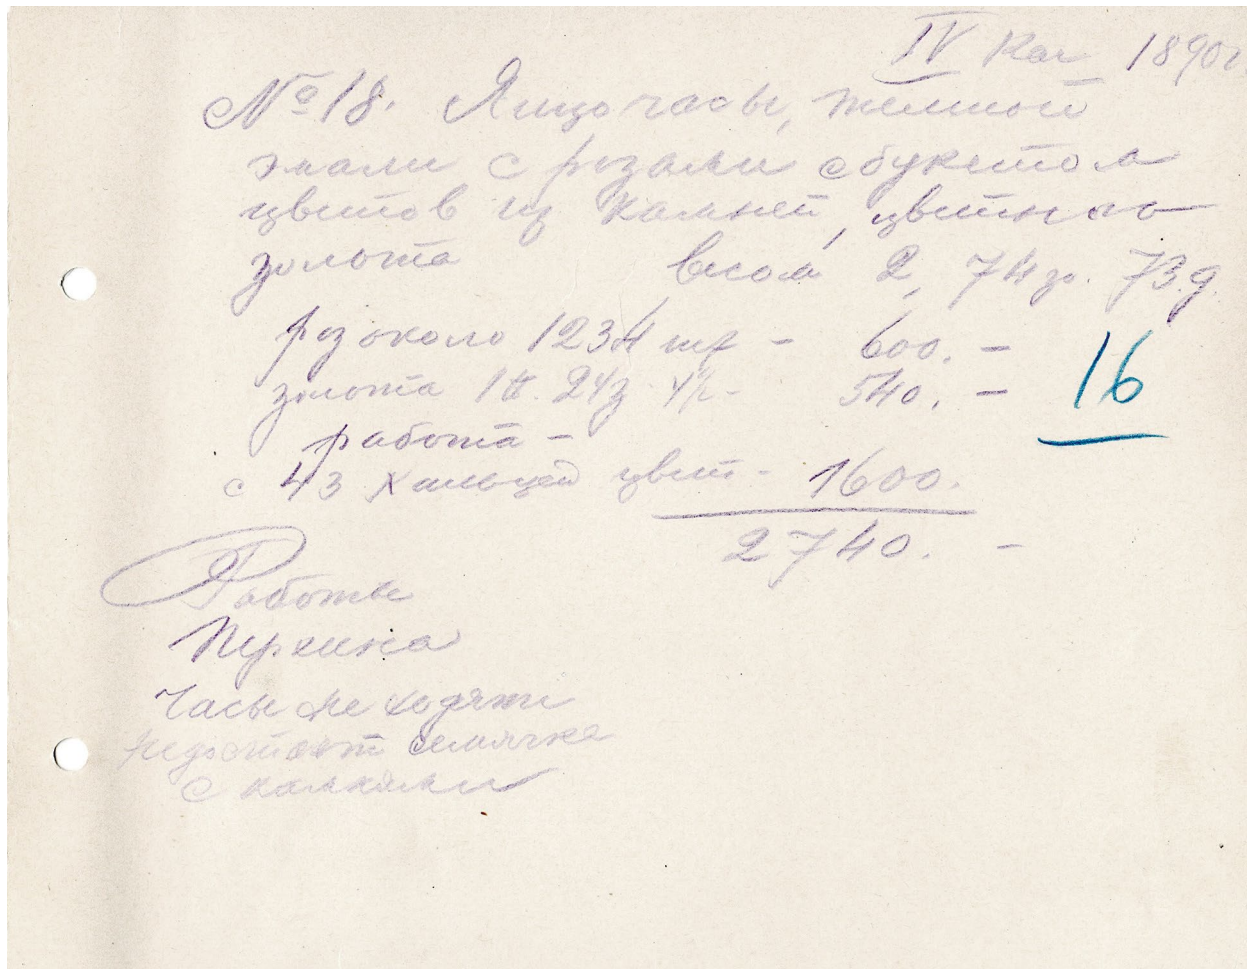 IV Кат 1890г.
№ 18. Яицо часы, темной
эмали с розами с букетом
цветов из камней, цветного
золота весом 2, 74 зо. 73.д.
роз около 1234 шт - 600. -
золота 1 ф. 24 з - 540. -
16
работа -
с 43 халцед цвет - 1600.
2740. -
Работы
Перхина
Часы не ходят
недостает семячка
с камнями